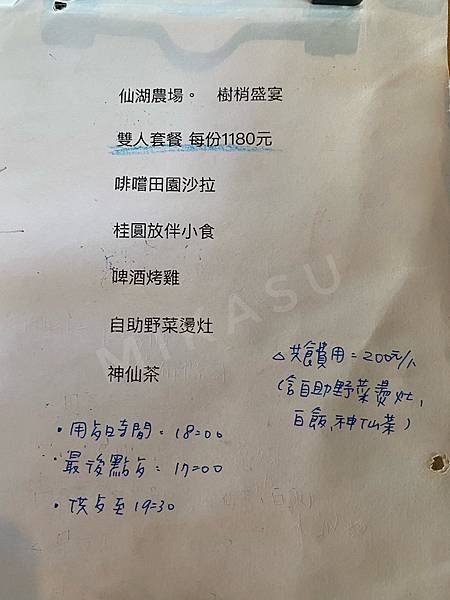 仙湖農場。 樹梢盛宴
雙人套餐 每份1180元
啡嚐田園沙拉
桂圓放伴小食
啤酒烤雞
自助野菜燙灶
神仙茶
△共食費用=200元/人
(含自助野菜燙灶,
白飯,神仙茶)
•用占時間:18:00
•最後點占:17:00
•供占至19:30
MIKASU